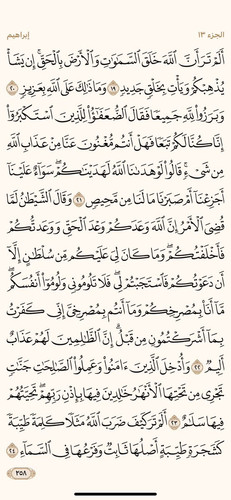 الجزء ١٣ إبراهيم
أَلَمْ تَرَ أَنَّ ٱللَّهَ خَلَقَ ٱلسَّمَٰوَٰتِ وَٱلْأَرْضَ بِٱلْحَقِّۚ إِن يَشَأْ
يُذْهِبْكُمْ وَيَأْتِ بِخَلْقٍ جَدِيدٍ ١٩ وَمَا ذَٰلِكَ عَلَى ٱللَّهِ بِعَزِيزٍ ٢٠
وَبَرَزُوا۟ لِلَّهِ جَمِيعًا فَقَالَ ٱلضُّعَفَٰٓؤُا۟ لِلَّذِينَ ٱسْتَكْبَرُوٓا۟
إِنَّا كُنَّا لَكُمْ تَبَعًا فَهَلْ أَنتُم مُّغْنُونَ عَنَّا مِنْ عَذَابِ ٱللَّهِ
مِن شَىْءٍۚ قَالُوا۟ لَوْ هَدَىٰنَا ٱللَّهُ لَهَدَيْنَٰكُمْۖ سَوَآءٌ عَلَيْنَآ
أَجَزِعْنَآ أَمْ صَبَرْنَا مَا لَنَا مِن مَّحِيصٍ ٢١ وَقَالَ ٱلشَّيْطَٰنُ لَمَّا
قُضِىَ ٱلْأَمْرُ إِنَّ ٱللَّهَ وَعَدَكُمْ وَعْدَ ٱلْحَقِّ وَوَعَدتُّكُمْ
فَأَخْلَفْتُكُمْۖ وَمَا كَانَ لِىَ عَلَيْكُم مِّن سُلْطَٰنٍ إِلَّآ
أَن دَعَوْتُكُمْ فَٱسْتَجَبْتُمْ لِىۖ فَلَا تَلُومُونِى وَلُومُوٓا۟ أَنفُسَكُمۖ
مَّآ أَنَا۠ بِمُصْرِخِكُمْ وَمَآ أَنتُم بِمُصْرِخِىَّۖ إِنِّى كَفَرْتُ
بِمَآ أَشْرَكْتُمُونِ مِن قَبْلُۗ إِنَّ ٱلظَّٰلِمِينَ لَهُمْ عَذَابٌ
أَلِيمٌ ٢٢ وَأُدْخِلَ ٱلَّذِينَ ءَامَنُوا۟ وَعَمِلُوا۟ ٱلصَّٰلِحَٰتِ جَنَّٰتٍ
تَجْرِى مِن تَحْتِهَا ٱلْأَنْهَٰرُ خَٰلِدِينَ فِيهَا بِإِذْنِ رَبِّهِمْۖ تَحِيَّتُهُمْ
فِيهَا سَلَٰمٌ ٢٣ أَلَمْ تَرَ كَيْفَ ضَرَبَ ٱللَّهُ مَثَلًا كَلِمَةً طَيِّبَةً
كَشَجَرَةٍ طَيِّبَةٍ أَصْلُهَا ثَابِتٌ وَفَرْعُهَا فِى ٱلسَّمَآءِ ٢٤
٢٥٨